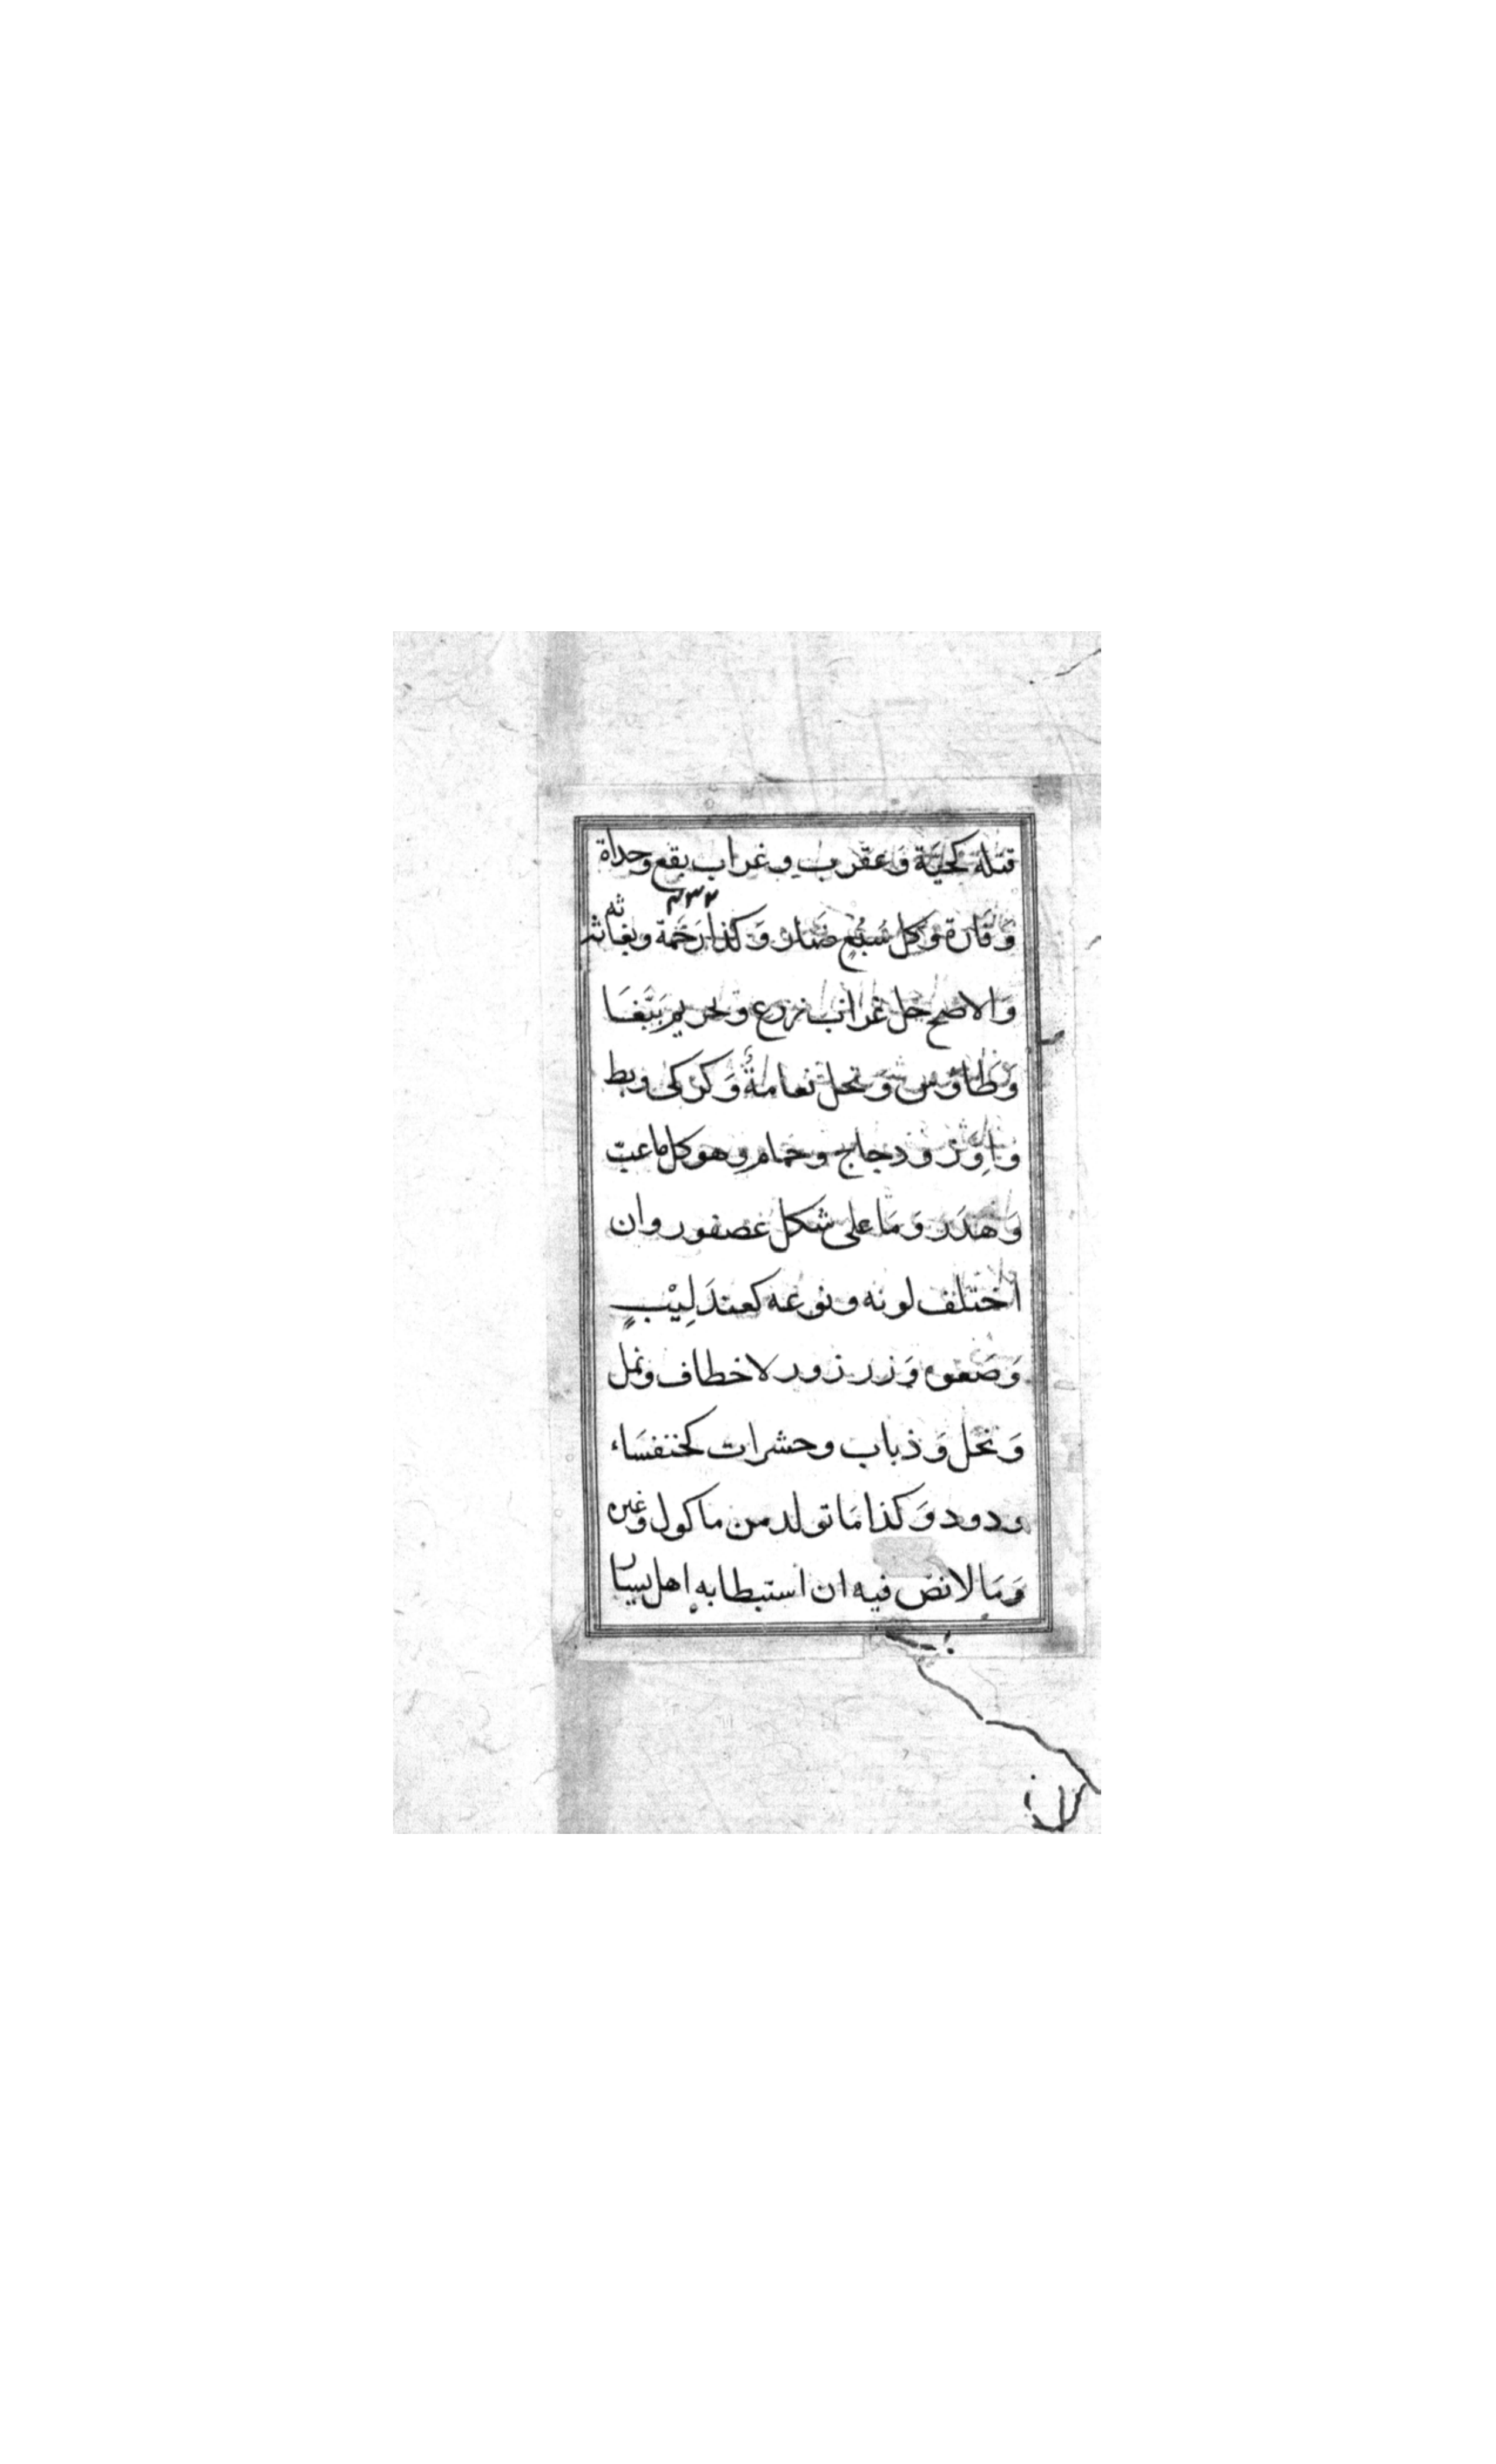 قتله كحيَة وَعقرب وغراب بقع وحداة
وَفَارة وَكل سَبُعٍ ضَار وَكذا رَخَمَة وبغاثه
وَالاصح حل غراب زرع وتحريم بَبَّغَا
وَطَاوس وَتحل نعامةٌ وَكركى وبط
وَاِوَز ودجاج وحمام وهو كل ما عبّ
وَهدَر وَمَا على شكل عصفور وان
اختلف لونه ونوعه كعندَلِيْبٍ
وَصَعوه وَزرزور لا خطاف ونمل
وَنحل وَذباب وحشرات كخنفسَاء
ودود وَكذا مَا تولد من ماكول وغيره
وَمَا لا نصّ فيه ان استبطابه اهل يسار